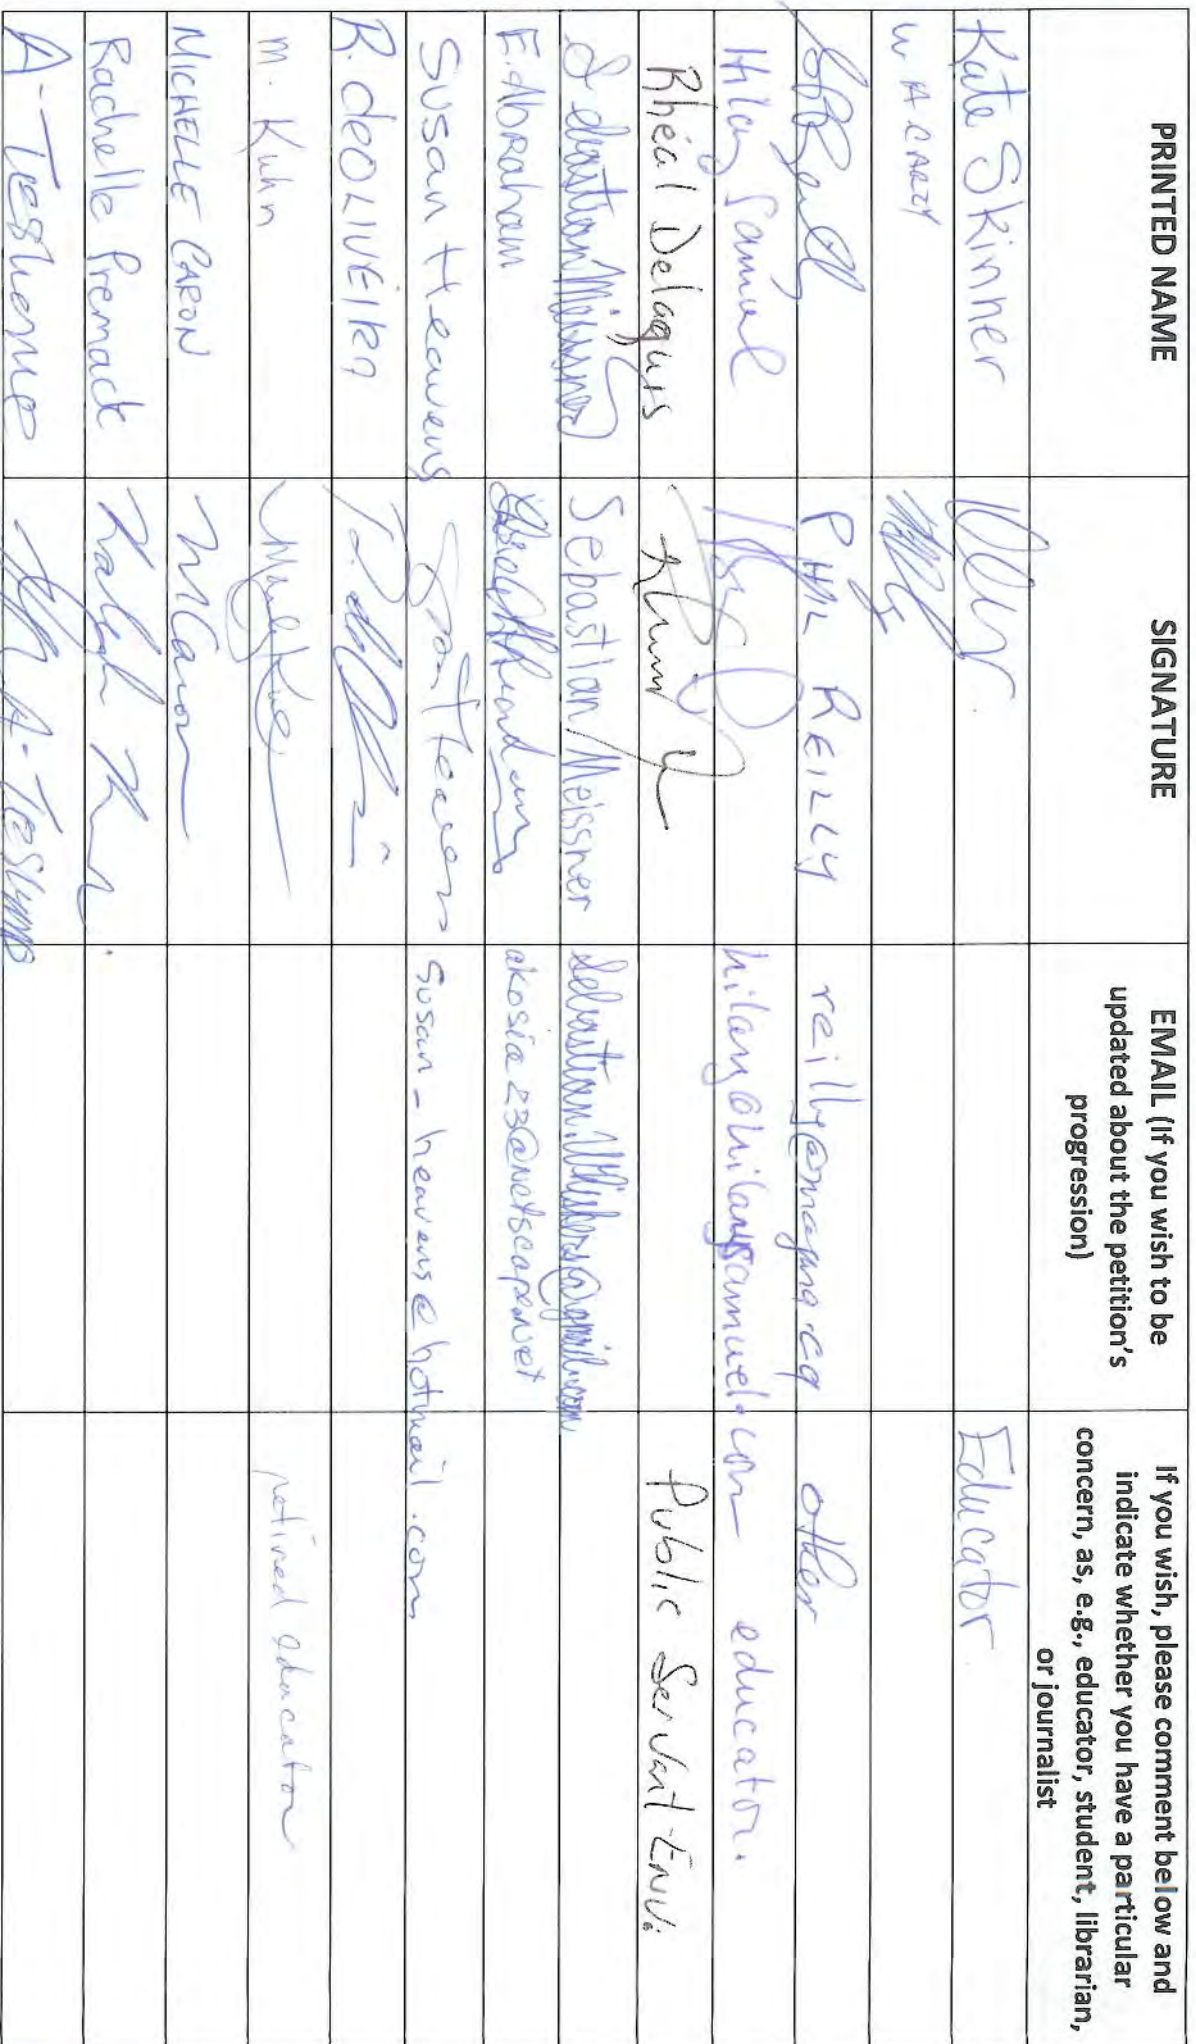 PRINTED NAME
SIGNATURE
EMAIL (If you wish to be
updated about the petition's
progression)
If you wish, please comment below and
indicate whether you have a particular
concern, as, e.g., educator, student, librarian,
or journalist
Kate Skinner
Educator
W. A. CARZY
PHIL REILLY
reilly@magma.ca
other
Hilary Samuel
hilary@hilarysamuel.com
educator.
Rhéal Delaquis
Public Servant-ENVi
Sebastian Meissner
Sebastian Meissner
F. Abraham
akosia23@netscape.net
Susan Heavens
susan_heavens@hotmail.com
R. deOLIVEIRA
M. Kuhn
retired educator
MICHELLE CARON
MCaron
Rachelle Premack
A-Teshome
A-Teshome